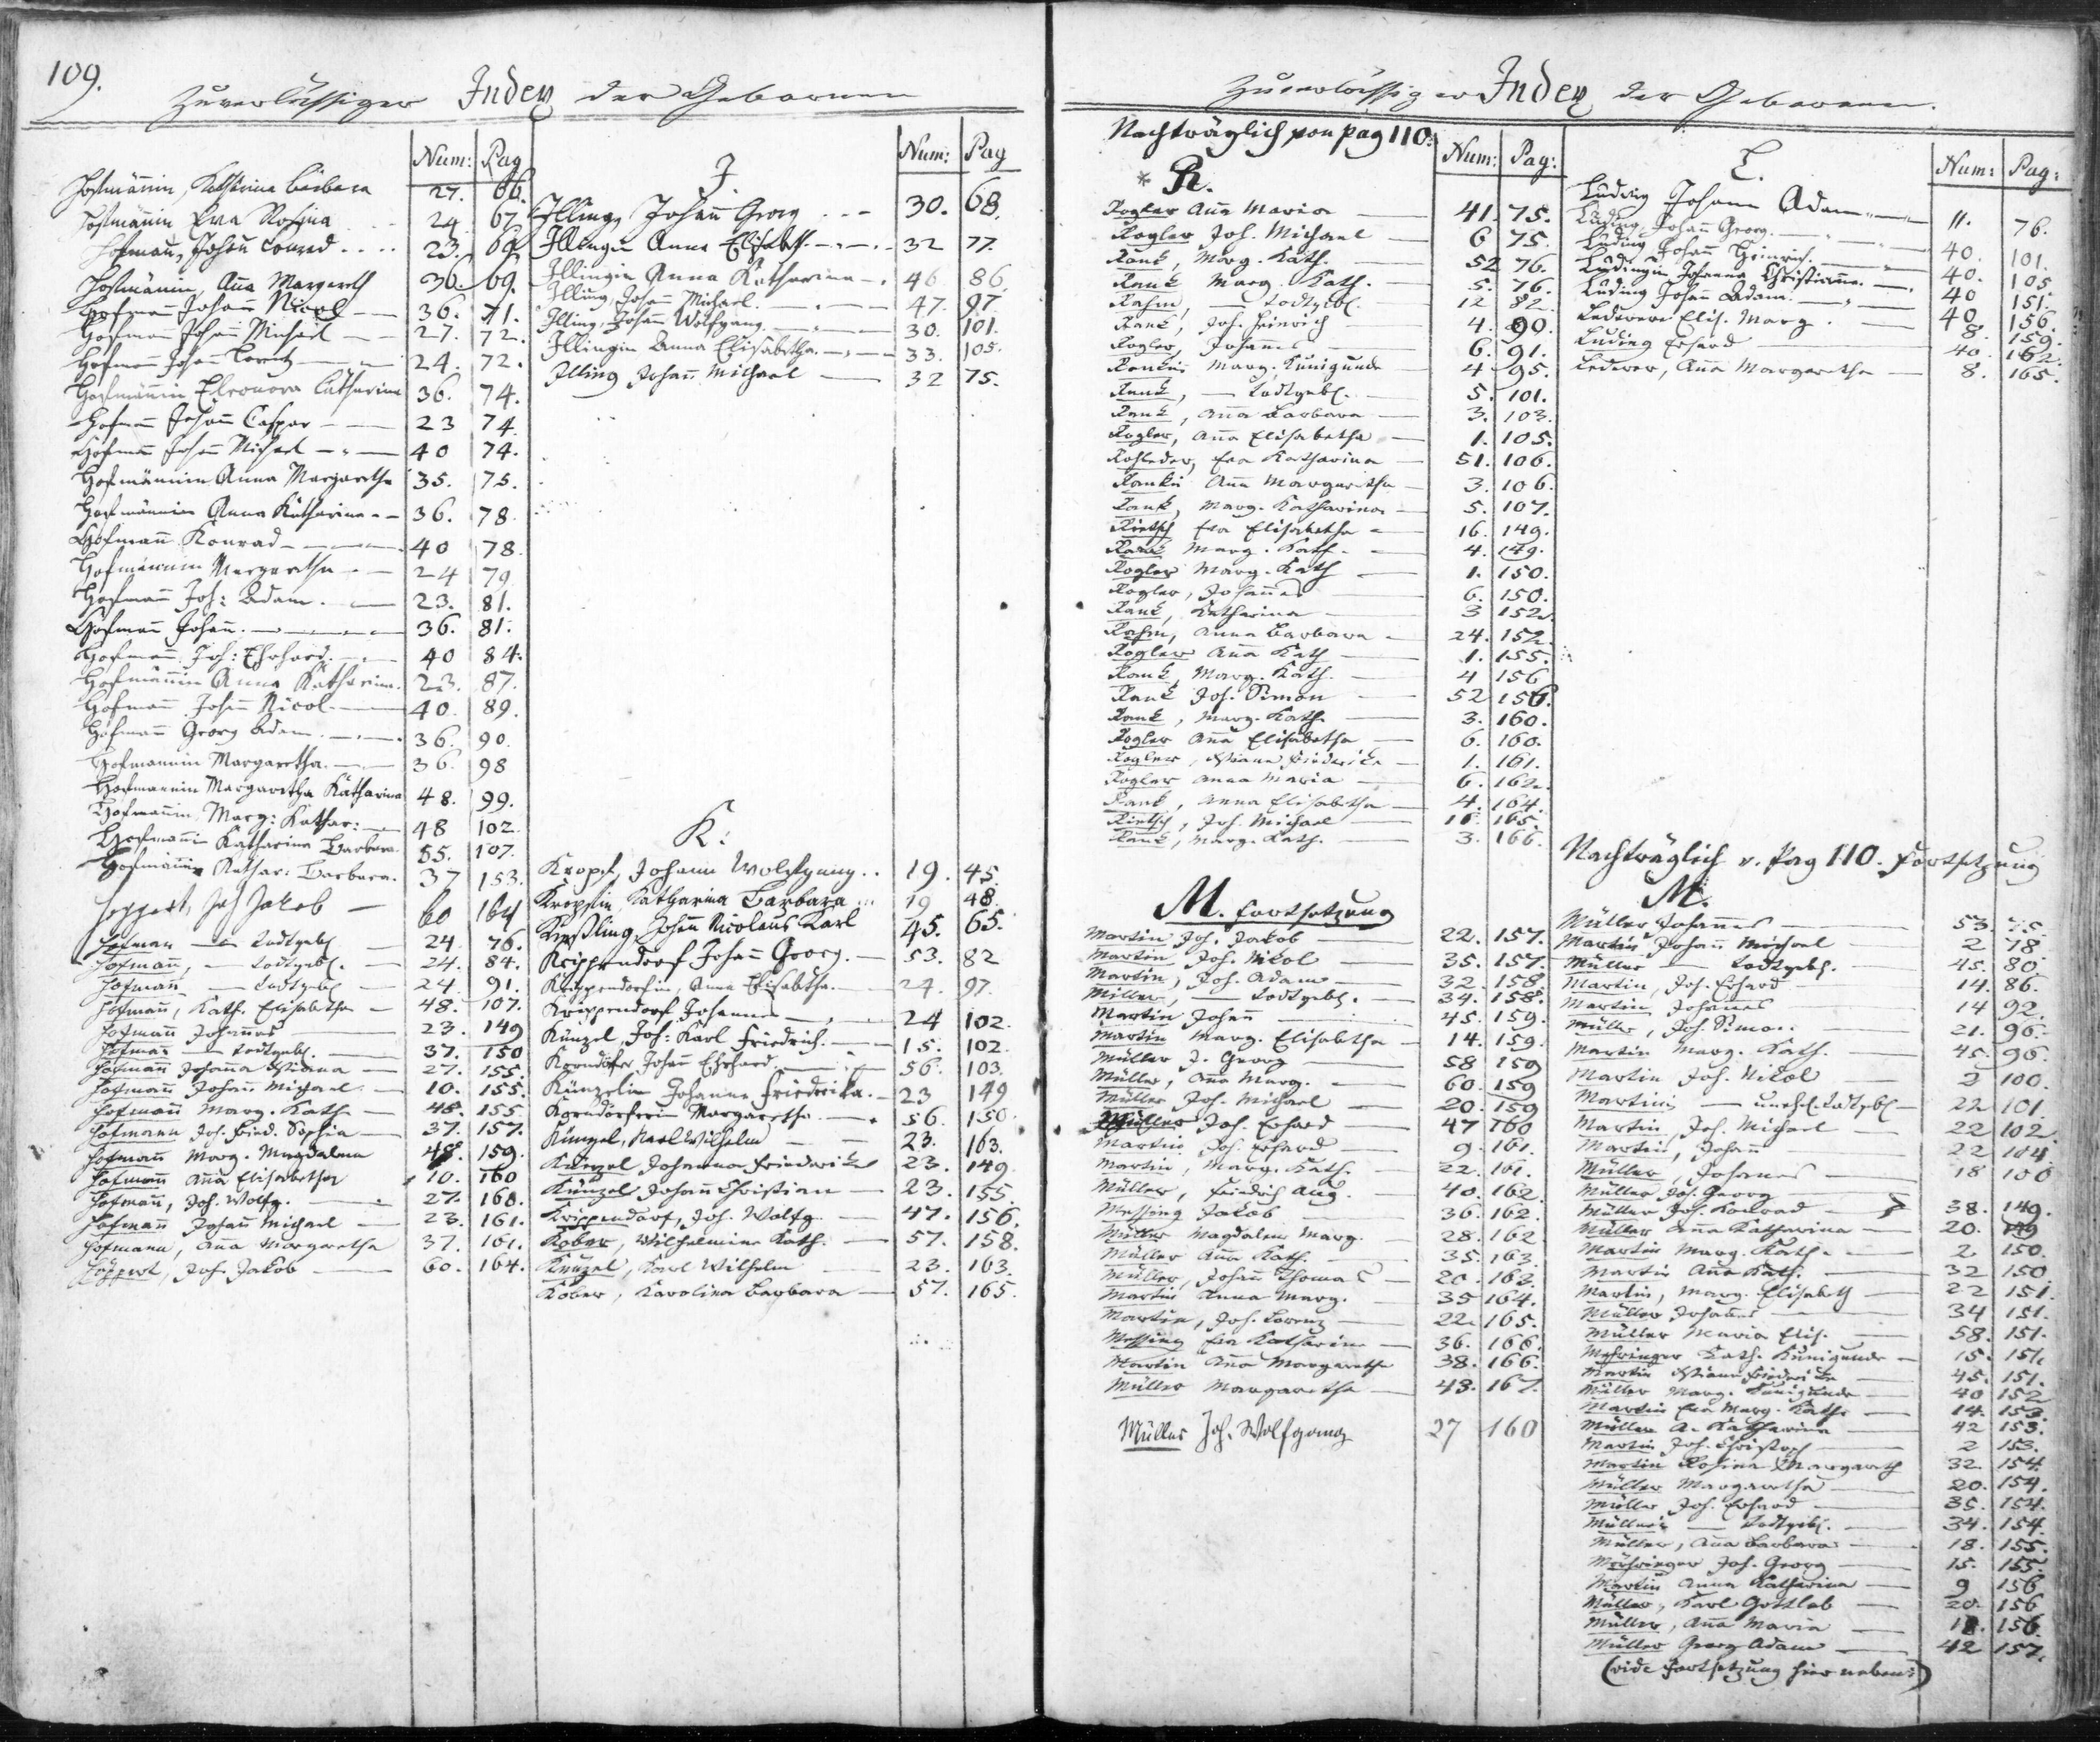 109.
Zuverlässiger Index der Gebornen
Num: Pag
Hofmännin, Katharina Barbara 27. 66.
Hofmännin Eva Rosina 24. 67.
Hofmann, Johann Conrad 23. 69.
Hofmännin, Anna Margareth 36. 69.
Hofmann Johann Nicol 36. 71.
Hofmann Johann Michael 27. 72.
Hofmann Johann Lorentz 24. 72.
Hofmännin Eleonora Catharina 36. 74.
Hofmann Johann Caspar 23 74.
Hofmann Johann Michael 40 74.
Hofmännin Anna Margaretha 35. 75.
Hofmännin Anna Katharina 36. 78.
Hofmann Konrad 40 78.
Hofmännin Margaretha 24 79.
Hofmann Joh: Adam. 23. 81.
Hofmann Johann. 36. 81.
Hofmann Joh: Ehrhard. 40 84.
Hofmännin Anna Katharina. 23. 87.
Hofmann Johann Nicol. 40. 89.
Hofmann Georg Adam. 36. 90.
Hofmannin Margaretha. 36. 98
Hofmannin Margaretha Katharina 48. 99.
Hofmannin Marg: Kathar: 48 102
Hofmannin Katharina Barbara. 55. 107.
Hofmannin Kathar: Barbara. 37 153.
Heppert, Joh Jakob 60 164
Hofmann — Todtgeb. 24. 76.
Hofmann, — Todtgeb. 24. 84.
Hofmann — Todtgeb. 24. 91.
Hofmann, Kath. Elisabetha 48. 107.
Hofmann Johannes 23. 149
Hofmann — Todtgeb. 37. 150
Hofmann Johanna 27. 155.
Hofmann Johann Michael 10. 155.
Hofmann Marg. Kath. 48. 155.
Hofmann Joh. Fried. Sophia 37. 157.
Hofmann Marg. Magdalena 48. 159.
Hofmann Anna Elisabetha 10. 160
Hofmann, Joh. Wolfg. 27. 160.
Hofmann Johann Michael 23. 161.
Hofmann, Anna Margaretha 37. 161.
Heppert, Joh. Jakob 60. 164.
J. Num: Pag
Illing, Johann Georg 30. 68.
Illingin Anna Elisabeth. 32 77.
Illingin Anna Katharina 46 86.
Illing, Johann Michael. 47. 97.
Illing, Johann Wolfgang. 30. 101.
Illingin Anna Elisabetha. 33. 105.
Illing Johann Michael 32 75.
K:
Kropf, Johann Wolfgang 19. 45.
Kropfin Katharina Barbara 19 48.
Johann Nicolaus Karl 45. 65.
Krippendorf Johann Georg. 53. 82
Krippendorfin, Anna Elisabetha. 24. 97.
Krippendorf Johannes 24 102.
Künzel, Joh: Karl Friedrich. 15. 102.
Korndörfer Johann Ehrhard. 56. 103.
Künzelin Johanna Friederika. 23 149
Korndörferin Margaretha 56. 150.
Künzel, Karl Wilhelm 23. 163.
Künzel Johanna Friederika 23. 149.
Künzel Johann Christian 23. 155.
Krippendorf, Joh. Wolfg. 47. 156.
Kober, Wilhelmine Kath. 57. 158.
Künzel, Karl Wilhelm 23. 163.
Kober, Karolina Barbara 57. 165.
Zuverlässiger Index der Gebornen.
Nachträglich von pag 110:
* R. Num: Pag:
Rogler Anna Maria 41. 75.
Rogler Joh. Michael 6 75.
Rank, Marg. Kath. 52 76.
Rank Marg. Kath. 5. 76.
Rahm, — Todtgeb. 12 82.
Rank, Joh. Heinrich 4. 90.
Rogler, Johannes 6. 91.
Rankin Marg. Kunigunda 4 95.
Rank, — Todtgeb. 5. 101.
Rank, Anna Barbara 3. 103.
Rogler, Anna Elisabetha 1. 105.
Rohleder, Eva Katharina 51. 106.
Rankin Anna Margaretha 3. 106.
Rank, Marg. Katharina 5. 107.
Rietsch Eva Elisabetha 16. 149.
Rank Marg. Kath. 4. 149.
Rogler Marg. Kath 1. 150.
Rogler, Johannes 6. 150.
Rank, Katharina 3 152.
Rahm, Anna Barbara 24. 152.
Rogler Anna Kath 1. 155.
Rank, Marg. Kath. 4 156
Rank Joh. Simon 52 156.
Rank, Marg. Kath. 3. 160.
Rogler Anna Elisabetha 6. 160.
Rogler, Friederika 1. 161.
Rogler Anna Maria 6. 162.
Rank, Anna Elisabetha 4. 164.
Rietsch, Joh. Michael 16. 165.
Rank, Marg. Kath. 3. 166.
M. Fortsetzung
Martin Joh. Jakob 22. 157.
Martin Joh. Nikol 35. 157.
Martin, Joh. Adam 32. 158.
Müller, — Todtgeb. 34. 158.
Martin Johann 45. 159.
Martin Marg. Elisabetha 14. 159.
Müller J. Georg 58 159
Müller, Anna Marg. 60. 159
Müller Joh. Michael 20. 159
Müller Joh. Erhard 47 160
Martin Joh. Erhard 9. 161.
Martin, Marg. Kath. 22. 161.
Müller, Friedrich Aug. 40. 162.
Messing Jakob 36. 162.
Müller Magdalena Marg. 28. 162
Müller Anna Kath. 35. 163.
Müller, Johann Thomas 20. 163.
Martin Anna Marg. 35 164.
Martin, Joh. Lorenz 22. 165.
Messing Eva Katharina 36. 166.
Martin Anna Margaretha 38. 166.
Müller Margaretha 48. 167.
Müller Joh. Wolfgang 27 160
L. Num: Pag:
Luding Johann Adam 11. 76.
Luding Johann Georg. 40. 101.
Luding Johann Heinrich. 40. 105.
Ludingin Johanna Christiana. 40 151.
Luding Johann Adam 40 156.
Lederer Elis. Marg. 8. 159.
Luding Erhard 40. 162.
Lederer, Anna Margaretha 8. 165.
Nachträglich v. Pag 110. Fortsetzung
M.
Müller Johannes 53. 75.
Martin Johann Michael 2 78
Müller — Todtgeb. 45. 80
Martin, Joh. Erhard 14. 86.
Martin Johannes 14 92.
Müller, Joh. Simon. 21. 96.
Martin Marg. Kath. 45. 96.
Martin Joh. Nikol 2 100.
Martin — unehel. Todtgeb. 22 101.
Martin, Joh. Michael 22 102.
Martin, Johann 22 104
Müller, Johannes 18 106
Müller Joh. Georg
Müller Joh. Konrad 38. 149.
Müller Anna Katharina 20. 149
Martin Marg. Kath. 2. 150.
Martin Anna Kath. 32 150
Martin, Marg. Elisabeth 22 151.
Müller Johannes 34 151.
Müller Maria Elis. 58. 151.
Möhringer Kath. Kunigunda 15. 151.
Martin Friederika 45. 151.
Müller Marg. Kunigunda 40 152
Martin Eva Marg. Kath. 14. 153.
Müller A. Katharina 42 153.
Martin Joh. Christoph 2 153.
Martin Rosina Margareth 32. 154.
Müller Margaretha 20. 154.
Müller Joh. Erhard 35. 154.
Müller — Todtgeb. 34. 154.
Müller, Anna Barbara 18. 155.
Möhringer Joh. Georg 15. 155.
Martin Anna Katharina 9 156
Müller, Karl Gottlob 20. 156
Müller, Anna Maria 18. 156.
Müller Georg Adam 42 157.
(vide Fortsetzung hier neben:)